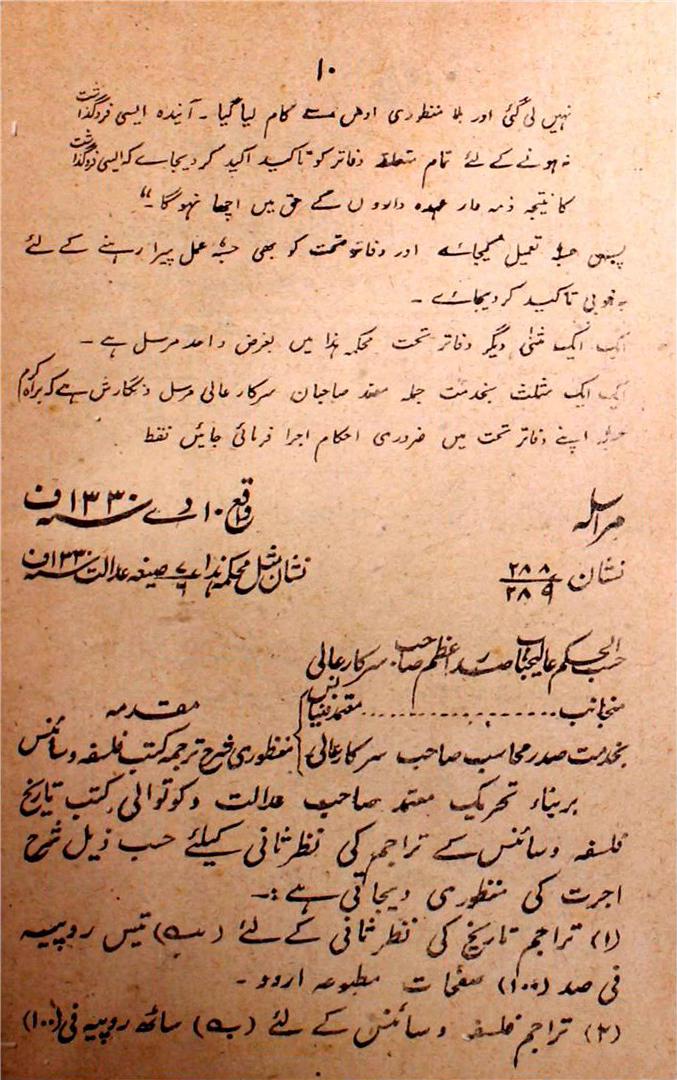 ۱۰
نہیں لی گئی اور بلا منظوری اوس سے کام لیا گیا ۔ آئندہ ایسی فروگذاشت
نہ ہونے کے لئے تمام متعلقہ دفاتر کو تاکید اکید کر دیجائے کہ ایسی فروگذاشت
کا نتیجہ ذمہ دار عہدہ داروں کے حق میں اچھا نہوگا ۔"
پس تعمیل کیجائے اور دفاتر تحت کو بھی حسبہ عمل پیرا رہنے کے لئے
بہ خوبی تاکید کر دیجائے ۔
ایک ایک مثنیٰ دیگر دفاتر تحت محکمہ ہذا میں بغرض مرسل ہے ۔
ایک ایک مثلث بخدمت جملہ معتمد صاحبان سرکار عالی مرسل و نگارش ہے کہ براہ کرم
اپنے دفاتر تحت میں ضروری احکام اجرا فرمائی جائیں فقط
مراسلہ واقع ۱۰ دے سنہ ۱۳۳۰ ف
نشان ۲۸۸/۲۸۹ نشان مثل محکمہ ہذا ۷/۶ صیغہ عدالت سنہ ۱۳۳۰ ف
حسب الحکم عالیجناب صدر اعظم صاحب سرکار عالی
منجانب ............ معتمد فینانس مقدمہ
بخدمت صدر محاسب صاحب سرکار عالی منظوری شرح ترجمہ کتب فلسفہ و سائنس
بربناء تحریک معتمد صاحب عدالت و کوتوالی کتب تاریخ
فلسفہ و سائنس کے تراجم کی نظر ثانی کیلئے حسب ذیل شرح
اجرت کی منظوری دیجاتی ہے :۔
(۱) تراجم تاریخ کی نظر ثانی کے لئے تیس روپیہ
فی صد (۱۰۰) صفحات مطبوعہ اردو ۔
(۲) تراجم فلسفہ و سائنس کے لئے ساٹھ روپیہ فی (۱۰۰)